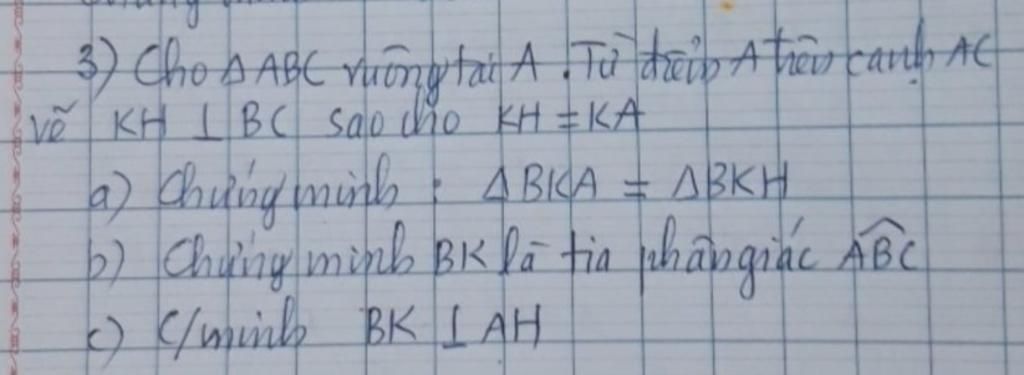 3) Cho ∆ ABC vuông tại A. Từ điểm A trên cạnh AC
vẽ KH ⊥ BC sao cho KH = KA
a) Chứng minh : ∆ BKA = ∆ BKH
b) Chứng minh BK là tia phân giác \widehat{ABC}
c) C/minh BK ⊥ AH